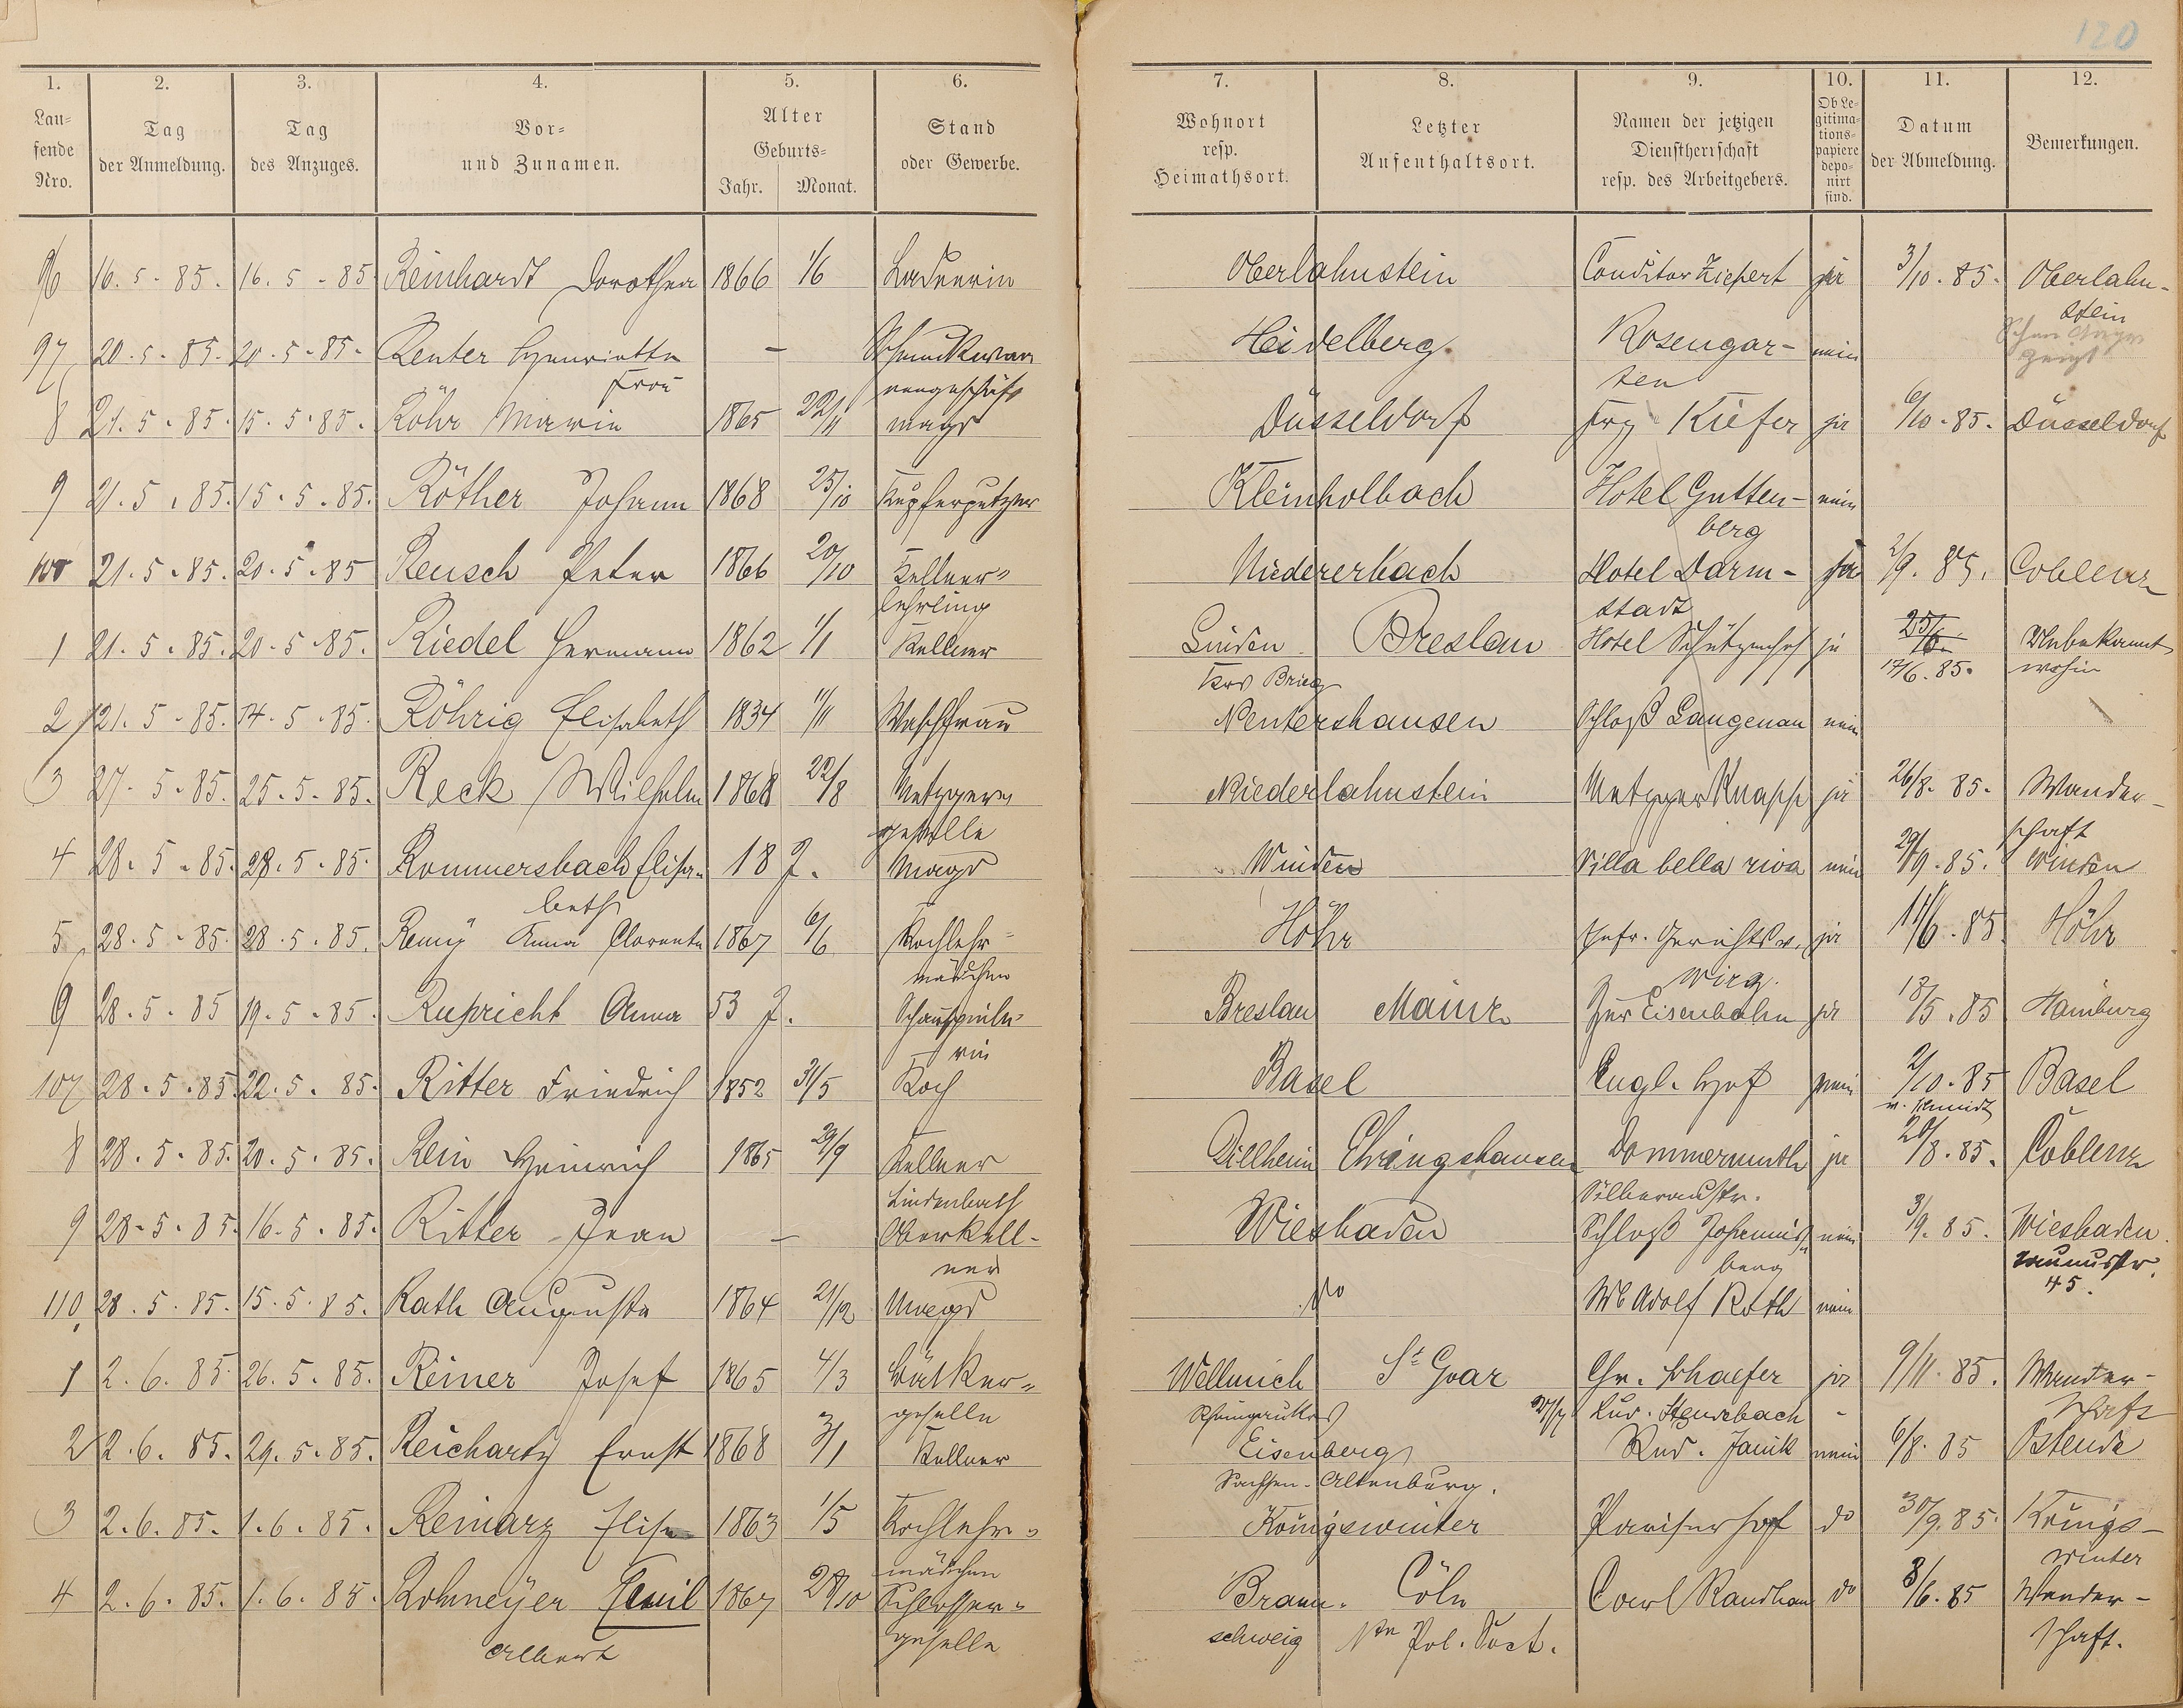 120
1. 2. 3. 4. 5. 6. 7. 8. 9. 10. 11. 12.
Lau-
fende
Nro.
Tag
der Anmeldung.
Tag
des Anzuges.
Vor-
und Zunamen.
Alter
Geburts-
Jahr. Monat.
Stand
oder Gewerbe.
Wohnort
resp.
Heimathsort.
Letzter
Aufenthaltsort.
Namen der jetzigen
Dienstherrschaft
resp. des Arbeitgebers.
Ob Le-
gitima-
tions-
papiere
depo-
nirt
sind.
Datum
der Abmeldung.
Bemerkungen.
96 16.5-85. 16.5-85 Reinhardt Dorothea 1866 1/6 Ladnerin Oberlahnstein Conditor Ziepert ja 3/10.85. Oberlahn-
stein
97 20.5-85. 20.5-85. Reuter Henriette - Schmuckwaa Heidelberg. Rosengar- nein
Frau rengeschäft ten
8 21.5.85. 15.5.85. Röhr Marie 1865 22/11 Magd Düsseldorf Frz Kiefer ja 6/10.85. Düsseldorf
9 21.5.85. 15.5.85. Röther Johann 1868 25/10 Kupferputzer Kleinholbach Hotel Gutten- nein
berg
100 21.5.85. 20.5.85 Reusch Peter 1866 20/10 Kellner- Niedererbach Hotel Darm- ja 2/9.85. Coblenz
lehrling stadt
1 21.5.85. 20.5.85. Riedel Hermann 1862 1/1 Kellner Linden Breslau Hotel Schützenhof ja 25/6 Unbekannt
Krs Brieg 17/6.85. wohin
2 21.5.85. 14.5.85. Röhrig Elisabeth 1834 1/11 Waschfrau Nentershausen Schloß Langenau nein
3 27.5.85. 25.5.85. Reck Wilhelm 1868 22/8 Metzger Niederlahnstein Metzger Knapp ja 26/8.85. Wander-
geselle schaft
4 28.5.85. 28.5.85. Rommersbach Elisa- 18 J. Magd Winden Villa bella riva nein 29/9.85. Winden
beth
5 28.5.85. 28.5.85. Remÿ Anna Florentine 1867 6/6 Kochlehr- Höhr Gerichts ja 11/6.85 Höhr
mädchen
6 28.5.85 19.5.85. Rupricht Anna 53 J. Schauspiele- Breslau Mainz Zur Eisenbahn ja 18/5.85 Hamburg
rin
107 28.5.85 22.5.85. Ritter Friedrich 1852 31/5 Koch Basel Engl. Hof nein 2/10.85 Basel
8 28.5.85. 20.5.85. Rein Heinrich 1865 29/9 Kellner Dillheim Ehringshausen Dommermuth ja 20/8.85. Coblenz
Lindenbach Silberaustr.
9 28.5.85. 16.5.85. Ritter Jean - Oberkell- Wiesbaden Schloß Johannis- nein 3/9.85. Wiesbaden.
ner berg Taunusstr.
45.
110. 28.5.85. 15.5.85. Rath Auguste 1864 21/12 Magd do Wb Adolf Roth nein
1 2.6.85. 26.5.85. Reiner Josef 1865 4/3 Bäcker- Wellmich St Goar Chr. Schaefer ja 9/11.85. Wander-
geselle schaft
2 2.6.85. 29.5.85. Reichartz Ernst 1868 3/1 Kellner Eisenberg Rud. Janik nein 6/8.85 Ostende
Sachsen-Altenburg.
3 2.6.85. 1.6.85. Reinarz Elise 1863 1/5 Kochlehr- Königswinter Pariser Hof do 30/9.85. Königs-
mädchen winter
4 2.6.85. 1.6.85. Rohmeÿer Emil 1867 28/10 Schlosser- Braun- Cöln Carl Randhan do 8/6.85 Wander-
Albert geselle schweig schaft.